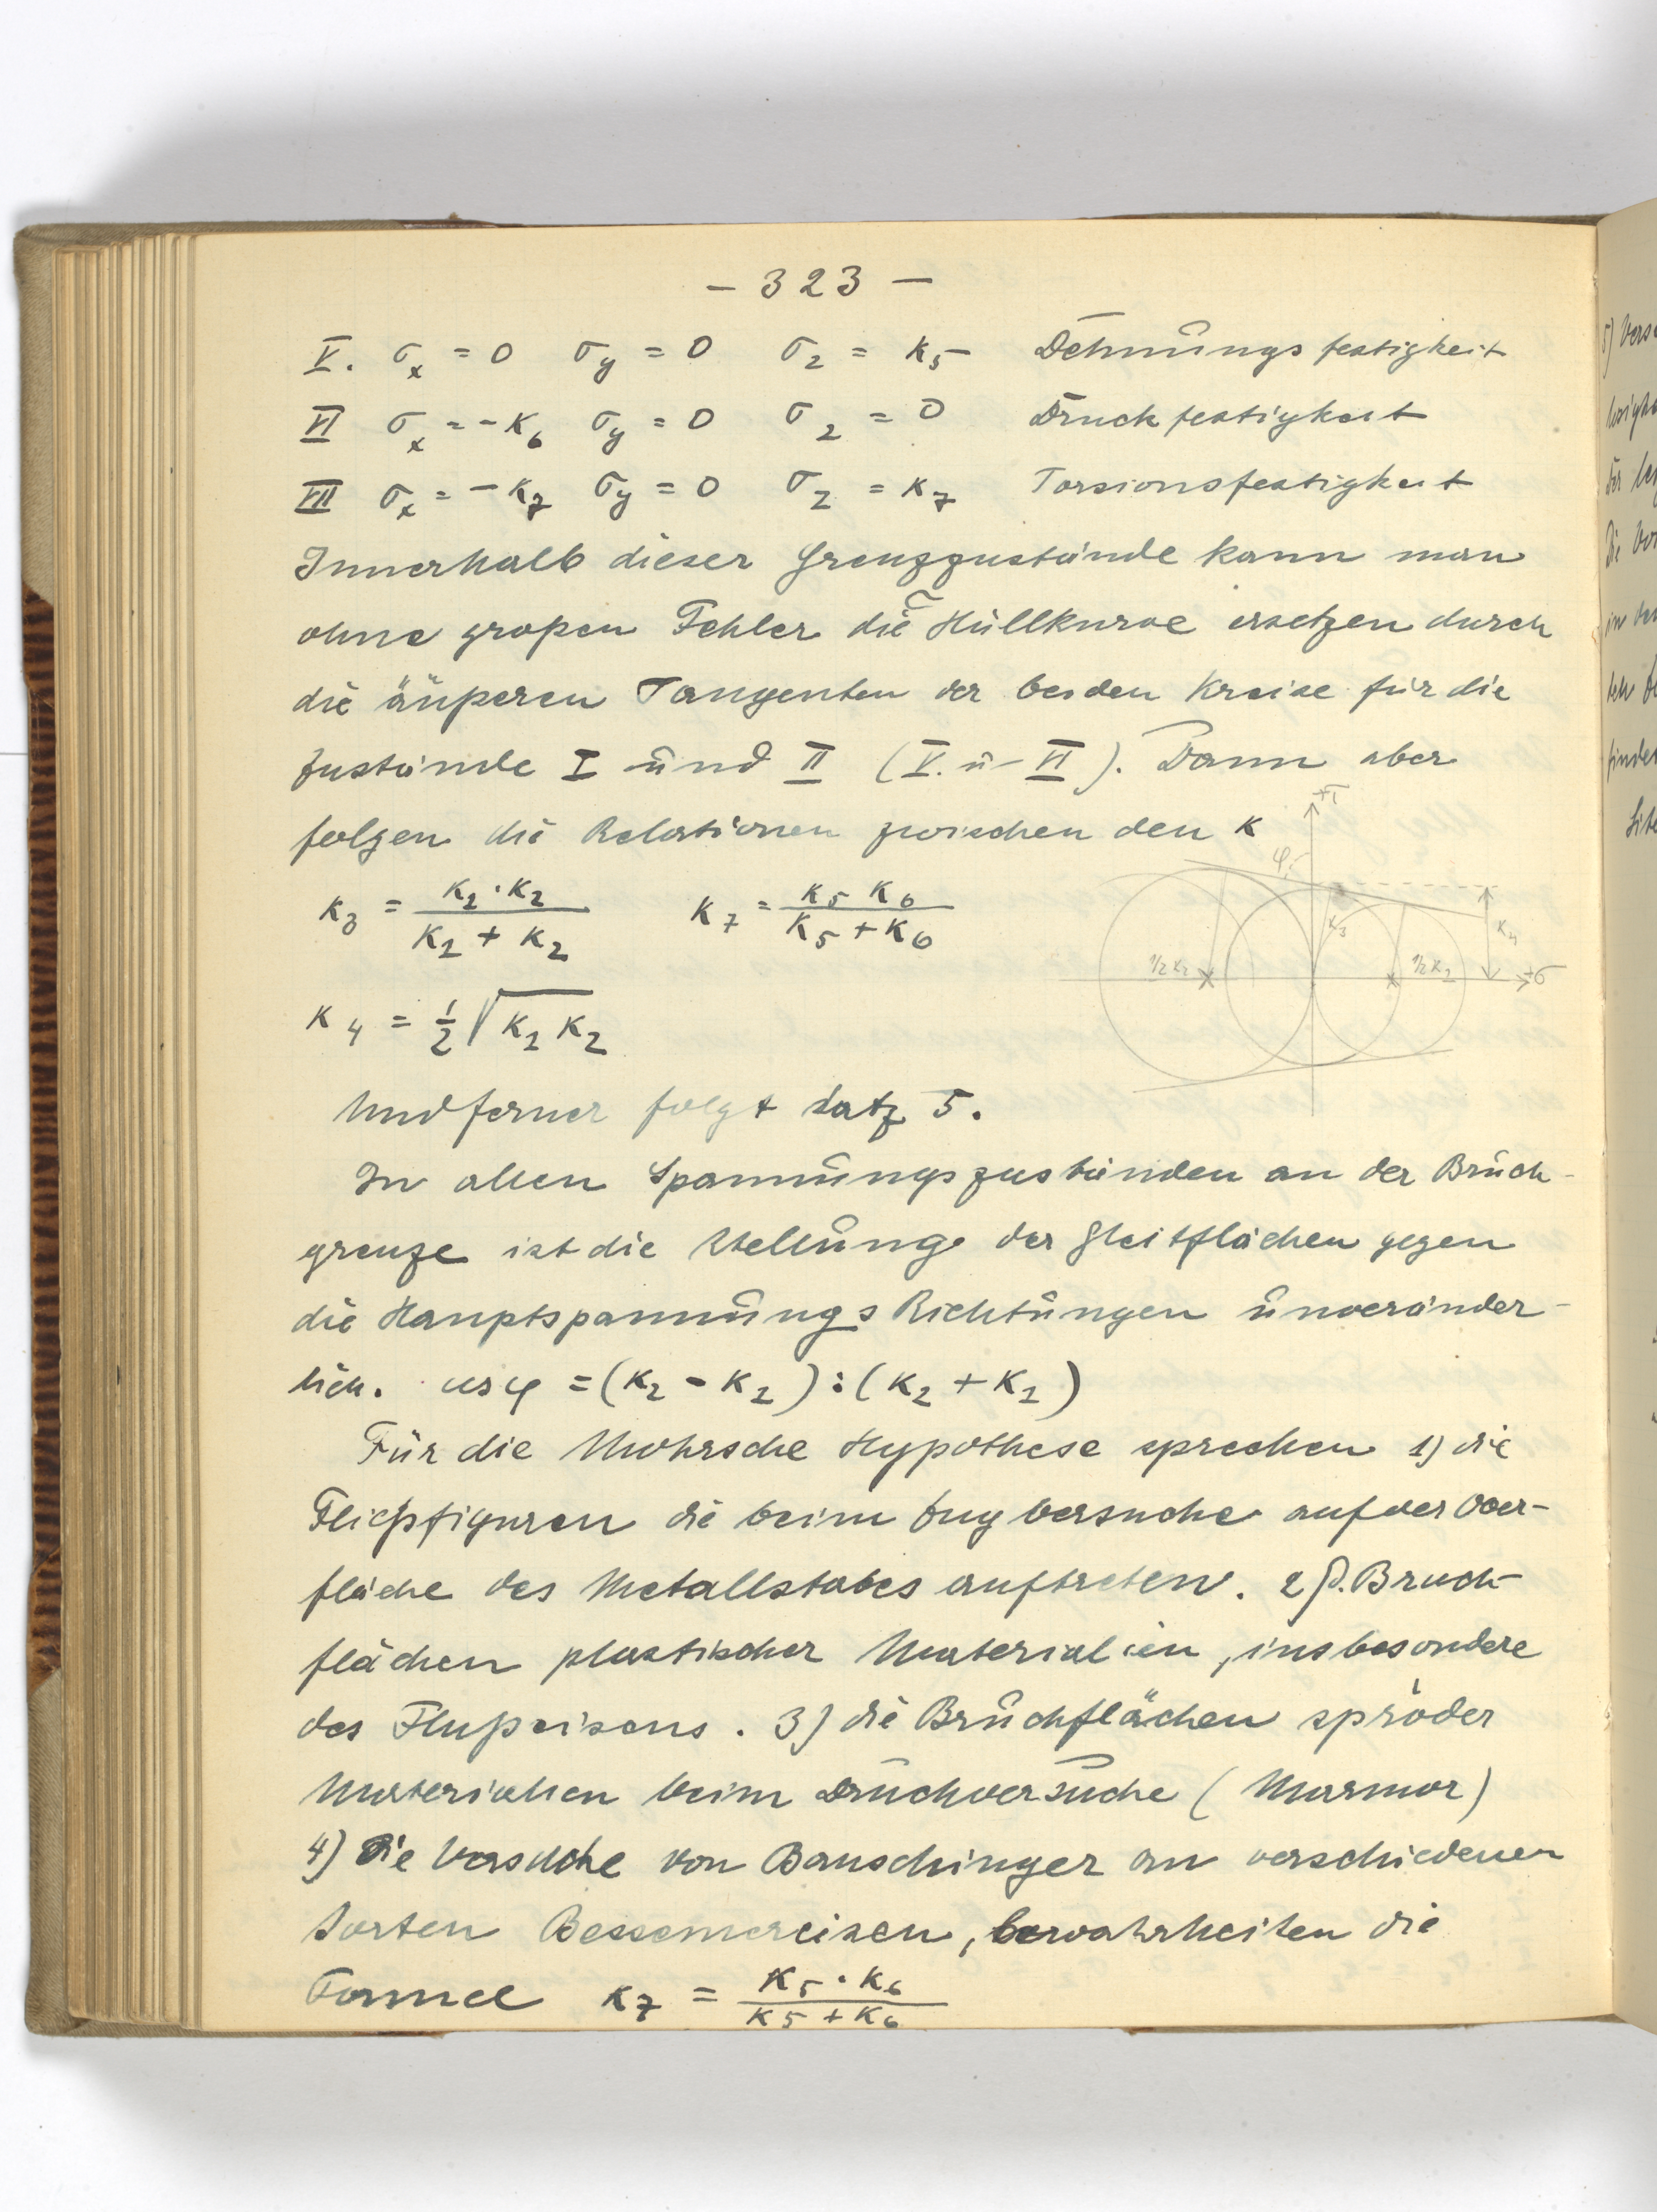 - 323 -
V. σx = 0 σy = 0 σz = K5 Dehnungsfestigkeit
VI σx = -K6 σy = 0 σz = 0 Druckfestigkeit
VII σx = -K7 σy = 0 σz = K7 Torsionsfestigkeit
Innerhalb dieser Grenzzustände kann man
ohne großen Fehler die Hüllkurve ersetzen durch
die äußeren Tangenten der beiden Kreise für die
Zustände I und II (V. u. VI). Dann aber
folgen die Relationen zwischen den K
K3 = K1·K2 / K1 + K2 K7 = K5 K6 / K5 + K6
+τ φ K3 K4 1/2 K2 1/2 K1 +σ
K4 = 1/2 √K1 K2
Und ferner folgt Satz 5.
In allen Spannungszuständen an der Bruch-
grenze ist die Stellung der Gleitflächen gegen
die Hauptspannungs Richtungen unveränder-
lich. cos φ = (K2 - K1) : (K2 + K1)
Für die Mohrsche Hypothese sprechen 1) die
Fließfiguren die beim Zugversuche auf der Ober-
fläche des Metallstabes auftreten. 2) d. Bruch-
flächen plastischer Materialien, insbesondere
des Flußeisens. 3) die Bruchflächen spröder
Materialien beim Druckversuche (Marmor)
4) Die Versuche von Bauschinger an verschiedenen
Sorten Bessemereisen, bewahrheiten die
Formel K7 = K5·K6 / K5 + K6